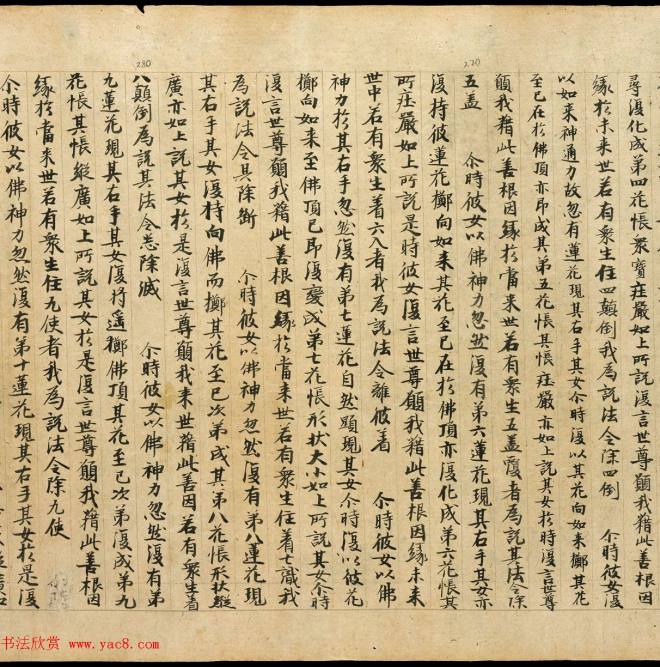 280
270
尋復化成第四花帳衆寶庄嚴如上所說復言世尊願我藉此善根因
緣於未来世若有衆生住四顛倒我為說法令除四倒　尒時彼女復
以如来神通力故忽有蓮花現其右手其女尒時復以其花向如来擲其花
至已在於佛頂亦即成其第五花帳其帳庄嚴亦如上說其女於時復言世尊
願我藉此善根因緣於當来世若有衆生五盖覆者為說其法令除
五盖　尒時彼女以佛神力忽然復有第六蓮花現其右手其女亦
復持彼蓮花擲向如来其花至已在於佛頂亦復化成第六花帳其
所庄嚴如上所說是時彼女復言世尊願我藉此善根因緣未来
世中若有衆生着六入者我為說法令離彼着　尒時彼女以佛
神力於其右手忽然復有第七蓮花自然顯現其女尒時復以彼花
擲向如来至佛頂已即復變成第七花帳形狀大小如上所說其女尒時
復言世尊願我藉此善根因緣於當来世若有衆生住着七識我
為說法令其除斷　尒時彼女以佛神力忽然復有第八蓮花現
其右手其女復持向佛而擲其花至已次第成其第八花帳形狀縱
廣亦如上說其女於是復言世尊願我来世藉此善因若有衆生着
八顛倒為說其法令悉除滅　尒時彼女以佛神力忽然復有第
九蓮花現其右手其女復持遥擲佛頂其花至已次第復成第九
花帳其帳縱廣如上所說其女於是復言世尊願我藉此善根因
緣於當来世若有衆生住九使者我為說法令除九使
尒時彼女以佛神力忽然復有第十蓮花現其右手其女於是復
书法欣赏 www.yac8.com